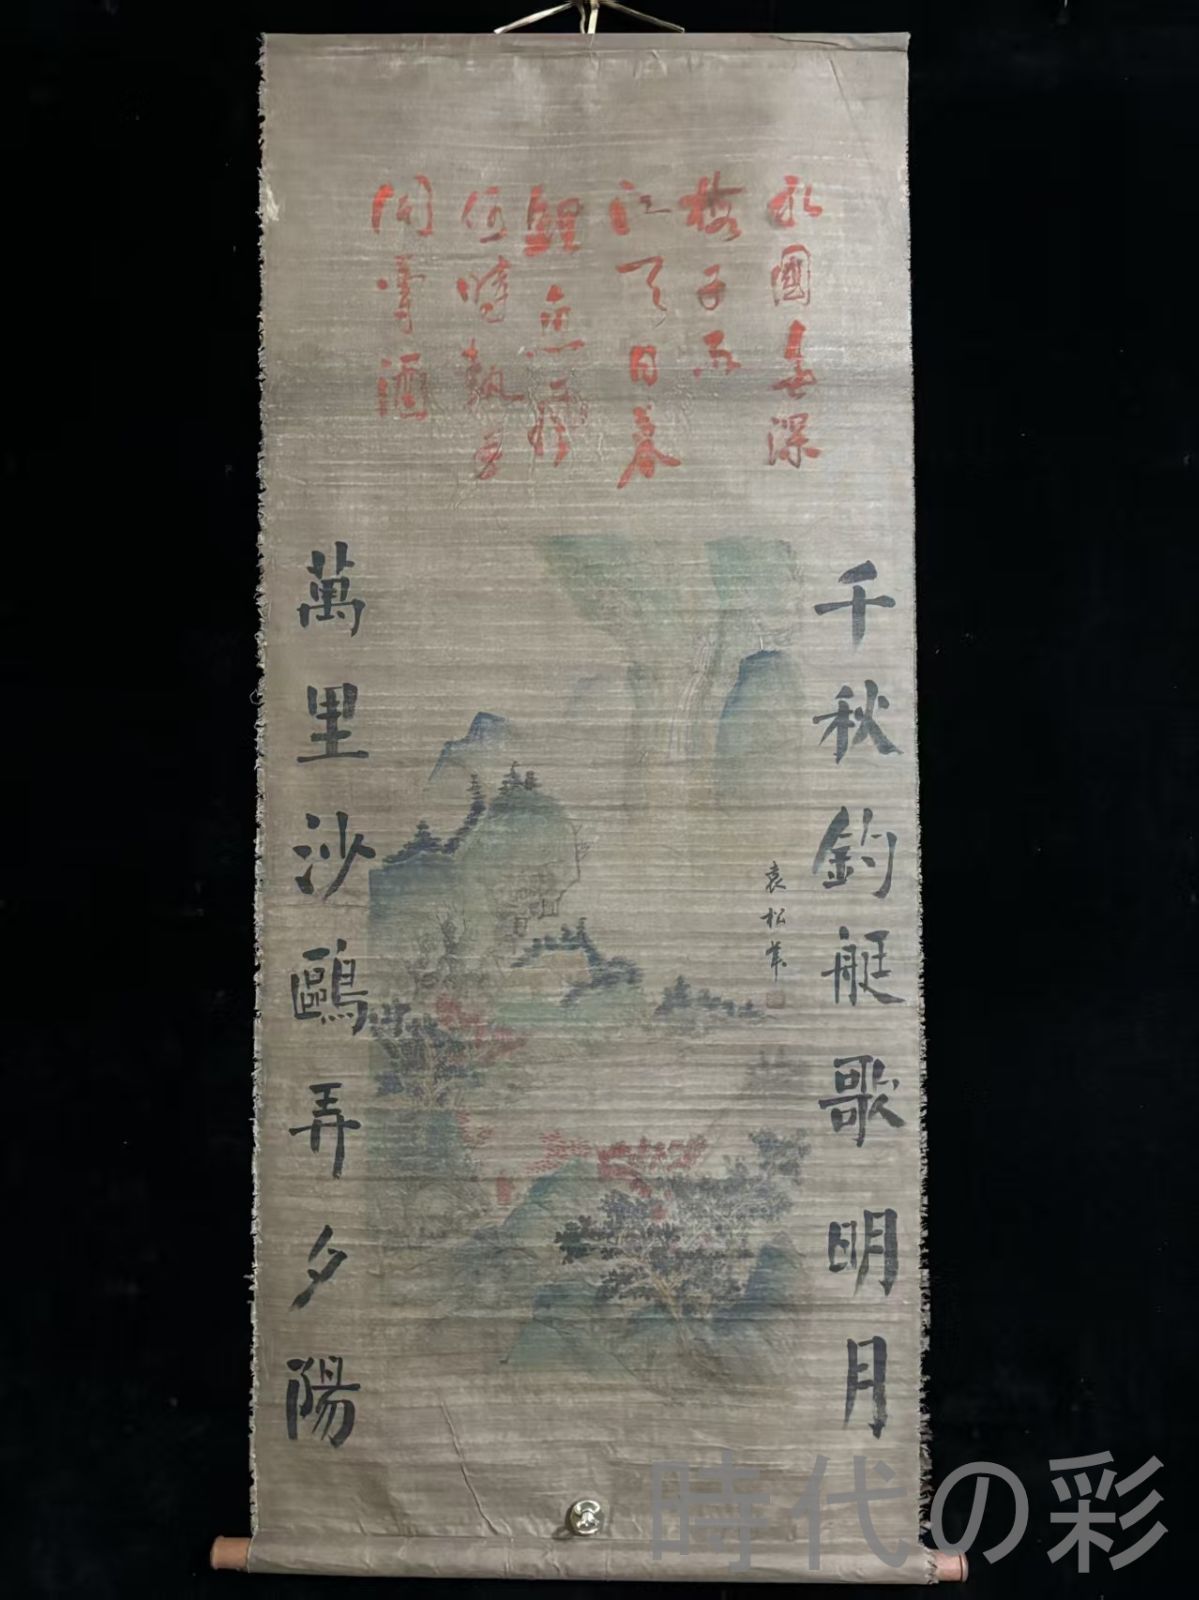 水國春深
梅子雨
江天日暮
鯉魚風
何時執手
開尊酒
千秋釣艇歌明月
萬里沙鷗弄夕陽
袁松年
時代の彩